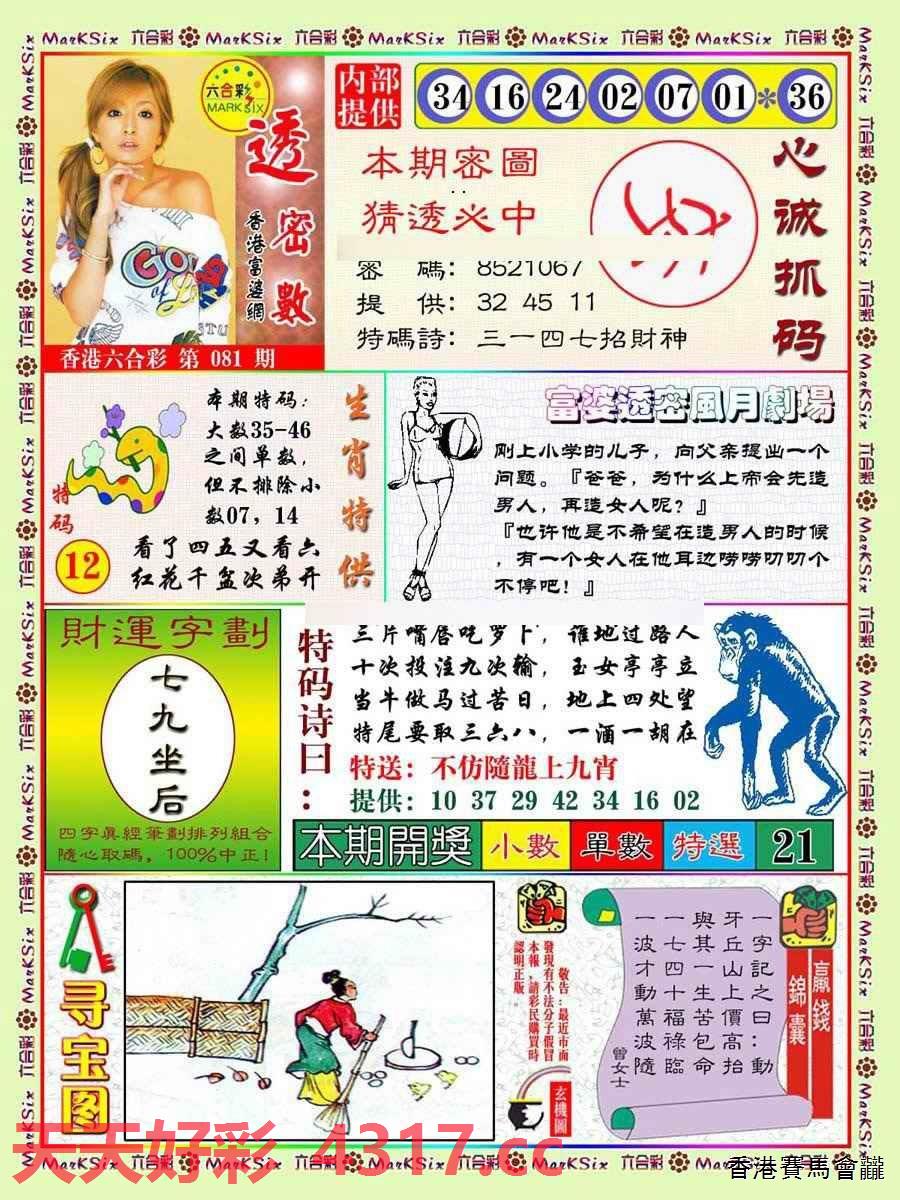 MarKSix 六合彩 MarKSix 六合彩 MarKSix 六合彩 MarKSix 六合彩 MarKSix 六合彩
六合彩
MARK SIX
透密數
香港富婆網
香港六合彩 第 081 期
内部提供
34 16 24 02 07 01 * 36
本期密圖
猜透必中
密 碼: 8521067
提 供: 32 45 11
特碼詩: 三一四七招財神
心诚抓码
本期特码:
大数35-46
之间单数,
但不排除小
数07, 14
特码
12
看了四五又看六
红花千盆次弟开
生肖特供
富婆透密風月劇場
刚上小学的儿子, 向父亲提出一个
问题。『爸爸, 为什么上帝会先造
男人, 再造女人呢? 』
『也许他是不希望在造男人的时候
, 有一个女人在他耳边唠唠叨叨个
不停吧! 』
財運字劃
七九坐后
四字真經筆劃排列組合
隨心取碼, 100%中正!
特码诗曰:
三片嘴唇吃罗卜, 谁地过路人
十次投注九次输, 玉女亭亭立
当牛做马过苦日, 地上四处望
特尾要取三六八, 一酒一胡在
特送: 不仿隨龍上九宵
提供: 10 37 29 42 34 16 02
本期開獎 小數 單數 特選 21
寻宝图
敬告:最近市面
發現有不法分子假冒
本報,請彩民購買時
認明正版。
玄機圖
贏錢
錦囊
一字記之曰:動
牙丘山上價高抬
與其一生苦包命
一七四十福祿臨
一波才動萬波隨
曾女士
天天好彩 4317.cc
MarKSix 六合彩 MarKSix 六合彩 MarKSix 六合彩 MarKSix 六合彩
香港賽馬會